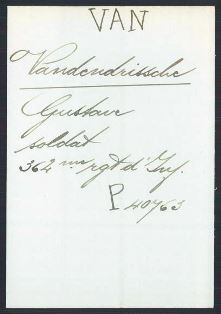 VAN
Vandendrissche
Gustave
soldat
362me rgt d'Inf.
P 40763